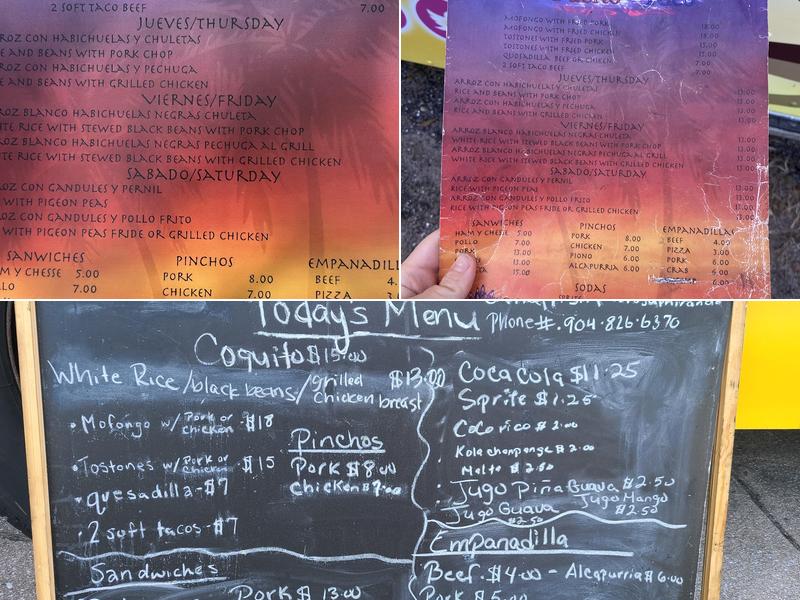 2 SOFT TACO BEEF 7.00
JUEVES/THURSDAY
ROZ CON HABICHUELAS Y CHULETAS
E AND BEANS WITH PORK CHOP
ROZ CON HABICHUELAS Y PECHUGA
E AND BEANS WITH GRILLED CHICKEN
VIERNES/FRIDAY
ROZ BLANCO HABICHUELAS NEGRAS CHULETA
TE RICE WITH STEWED BLACK BEANS WITH PORK CHOP
ROZ BLANCO HABICHUELAS NEGRAS PECHUGA AL GRILL
TE RICE WITH STEWED BLACK BEANS WITH GRILLED CHICKEN
SABADO/SATURDAY
ROZ CON GANDULES Y PERNIL
WITH PIGEON PEAS
ROZ CON GANDULES Y POLLO FRITO
WITH PIGEON PEAS FRIDE OR GRILLED CHICKEN
SANWICHES
M Y CHESSE 5.00
LLO 7.00
PINCHOS
PORK 8.00
CHICKEN 7.00
EMPANADILL
BEEF 4.
PIZZA 3.
MOFONGO WITH FRIED PORK 18.00
MOFONGO WITH FRIED CHICKEN 18.00
TOSTONES WITH FRIED PORK 15.00
TOSTONES WITH FRIED CHICKEN 15.00
QUOSADILLA BEEF OR CHIKEN 7.00
2 SOFT TACO BEEF 7.00
JUEVES/THURSDAY
ARROZ CON HABICHUELAS Y CHULETAS
RICE AND BEANS WITH PORK CHOP 13.00
ARROZ CON HABICHUELAS Y PECHUGA
RICE AND BEANS WITH GRILLED CHICKEN 13.00
VIERNES/FRIDAY
ARROZ BLANCO HABICHUELAS NEGRAS CHULETA
WHITE RICE WITH STEWED BLACK BEANS WITH PORK CHOP 13.00
ARROZ BLANCO HABICHUELAS NEGRAS PECHUGA AL GRILL
WHITE RICE WITH STEWED BLACK BEANS WITH GRILLED CHICKEN 13.00
SABADO/SATURDAY
ARROZ CON GANDULES Y PERNIL
RICE WITH PIGEON PEAS 13.00
ARROZ CON GANDULES Y POLLO FRITO
RICE WITH PIGEON PEAS FRIDE OR GRILLED CHICKEN 13.00
SANWICHES
HAM Y CHESSE 5.00
POLLO 7.00
PORK 13.00
15.00
PINCHOS
PORK 8.00
CHICKEN 7.00
PIONO 6.00
ALCAPURRIA 6.00
SODAS
EMPANADILLAS
BEEF 4.00
PIZZA 3.00
PORK 6.00
CRAB 4.00
6.00
Today's Menu
Phone#. 904.826.6370
Coquito $15.00
White Rice/black beans/grilled chicken breast $13.00
• Mofongo w/ Pork or chicken $18
• Tostones w/ Pork or chicken $15
• quesadilla - $7
• 2 soft tacos - $7
Pinchos
Pork $8.00
Chicken $7.00
Sandwiches
Pork $13.00
Coca cola $11.25
Sprite $1.25
Coco rico $2.00
Kola champange $2.00
Malta $2.50
Jugo Piña Guava $2.50
Jugo Guava $2.50
Jugo Mango $2.50
Empanadilla
Beef. $4.00 - Alcapurria $6.00
Pork $5.00